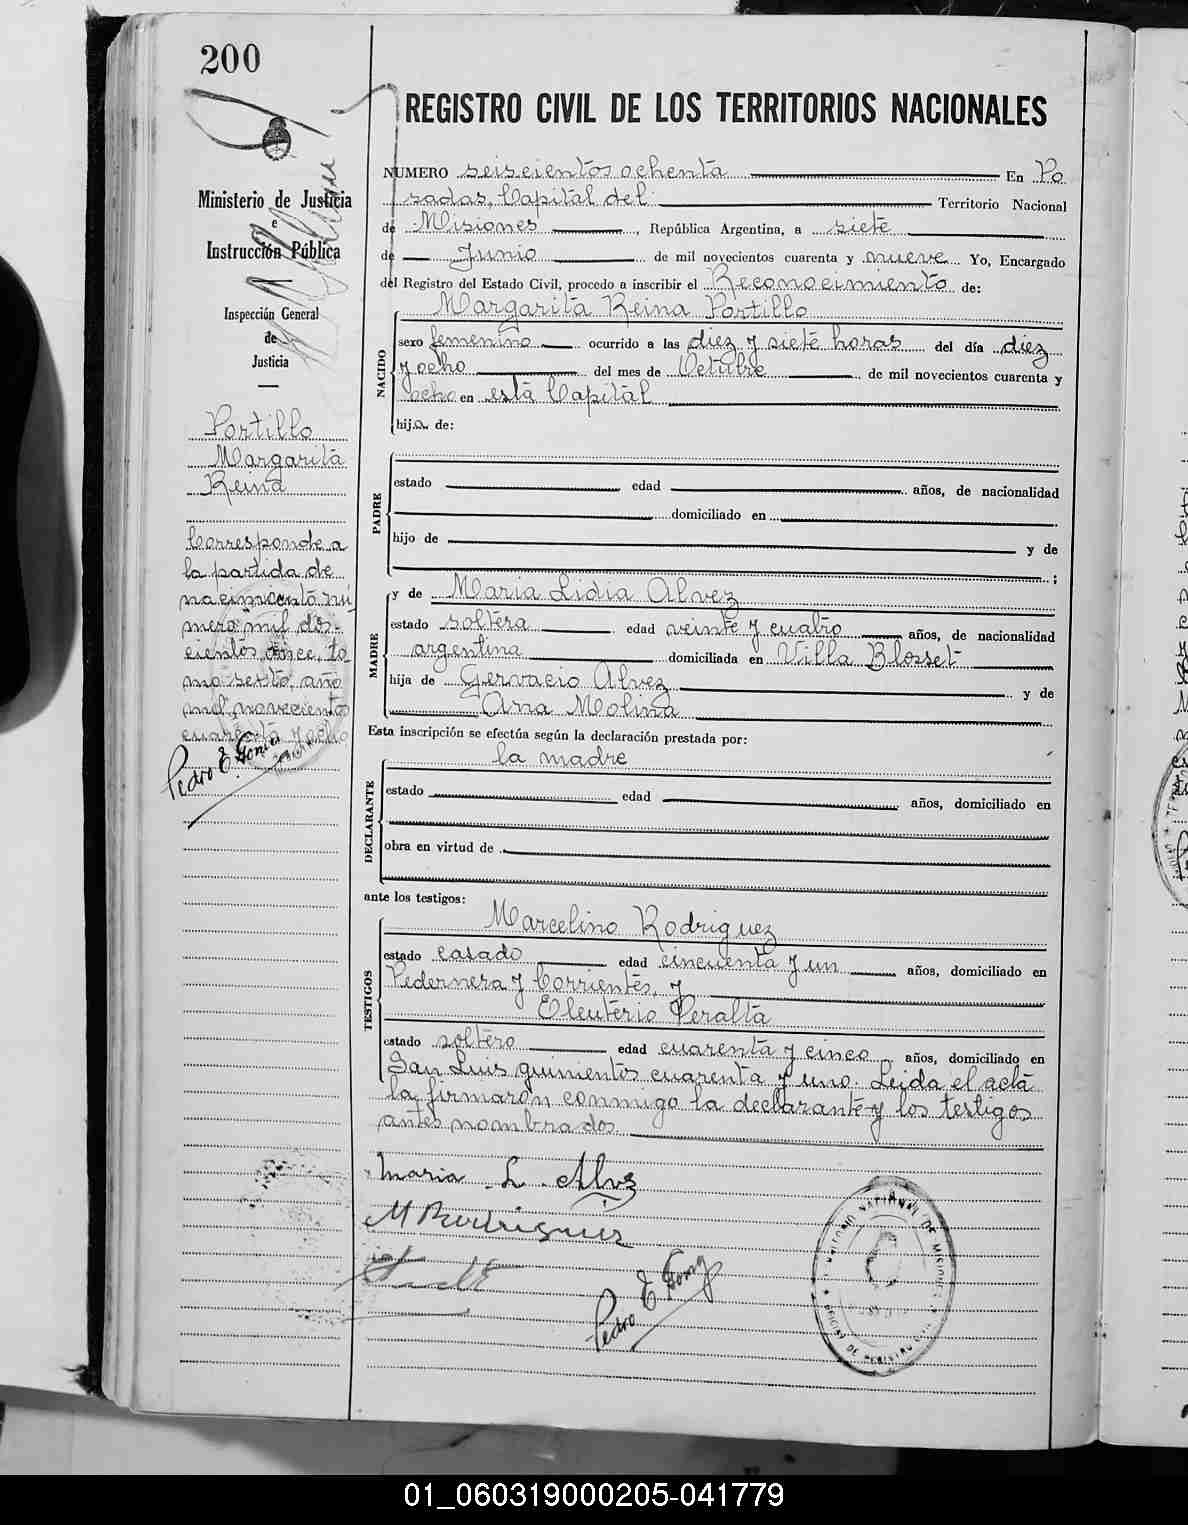 200
REGISTRO CIVIL DE LOS TERRITORIOS NACIONALES
Ministerio de Justicia
e
Instrucción Pública
Inspección General
de
Justicia
Portillo
Margarita
Reina
Corresponde a
la partida de
nacimiento nú
mero mil dos-
cientos once, to
mo sexto, año
mil novecientos
cuarenta y ocho
Pedro E. Gomez
NUMERO seiscientos ochenta En Po
sadas, Capital del Territorio Nacional
de Misiones, República Argentina, a siete
de Junio de mil novecientos cuarenta y nueve Yo, Encargado
del Registro del Estado Civil, procedo a inscribir el Reconocimiento de:
NACIDO
Margarita Reina Portillo
sexo femenino ocurrido a las diez y siete horas del día diez
y ocho del mes de Octubre de mil novecientos cuarenta y
ocho en esta Capital
hija de:
PADRE
estado edad años, de nacionalidad
domiciliado en
hijo de y de
;
MADRE
y de Maria Lidia Alvez
estado soltera edad veinte y cuatro años, de nacionalidad
argentina domiciliada en Villa Blosset
hija de Gervacio Alvez y de
Ana Molina
Esta inscripción se efectúa según la declaración prestada por:
DECLARANTE
la madre
estado edad años, domiciliado en
obra en virtud de
ante los testigos:
TESTIGOS
Marcelino Rodriguez
estado casado edad cincuenta y un años, domiciliado en
Pedernera y Corrientes, y
Eleuterio Peralta
estado soltero edad cuarenta y cinco años, domiciliado en
San Luis quinientos cuarenta y uno. Leida el acta
la firmaron conmigo la declarante y los testigos
antes nombrados.
Maria L. Alvez
M Rodriguez
Pedro E. Gomez
01_060319000205-041779